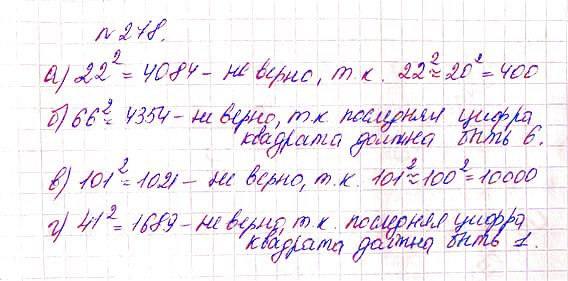 № 278.
а) 22² = 4084 – не верно, т.к. 22² ≈ 20² = 400
б) 66² = 4354 – не верно, т.к последняя цифра
квадрата должна быть 6.
в) 101² = 1021 – не верно, т.к. 101² ≈ 100² = 10000
г) 41² = 1689 – не верно, т.к. последняя цифра
квадрата должна быть 1.